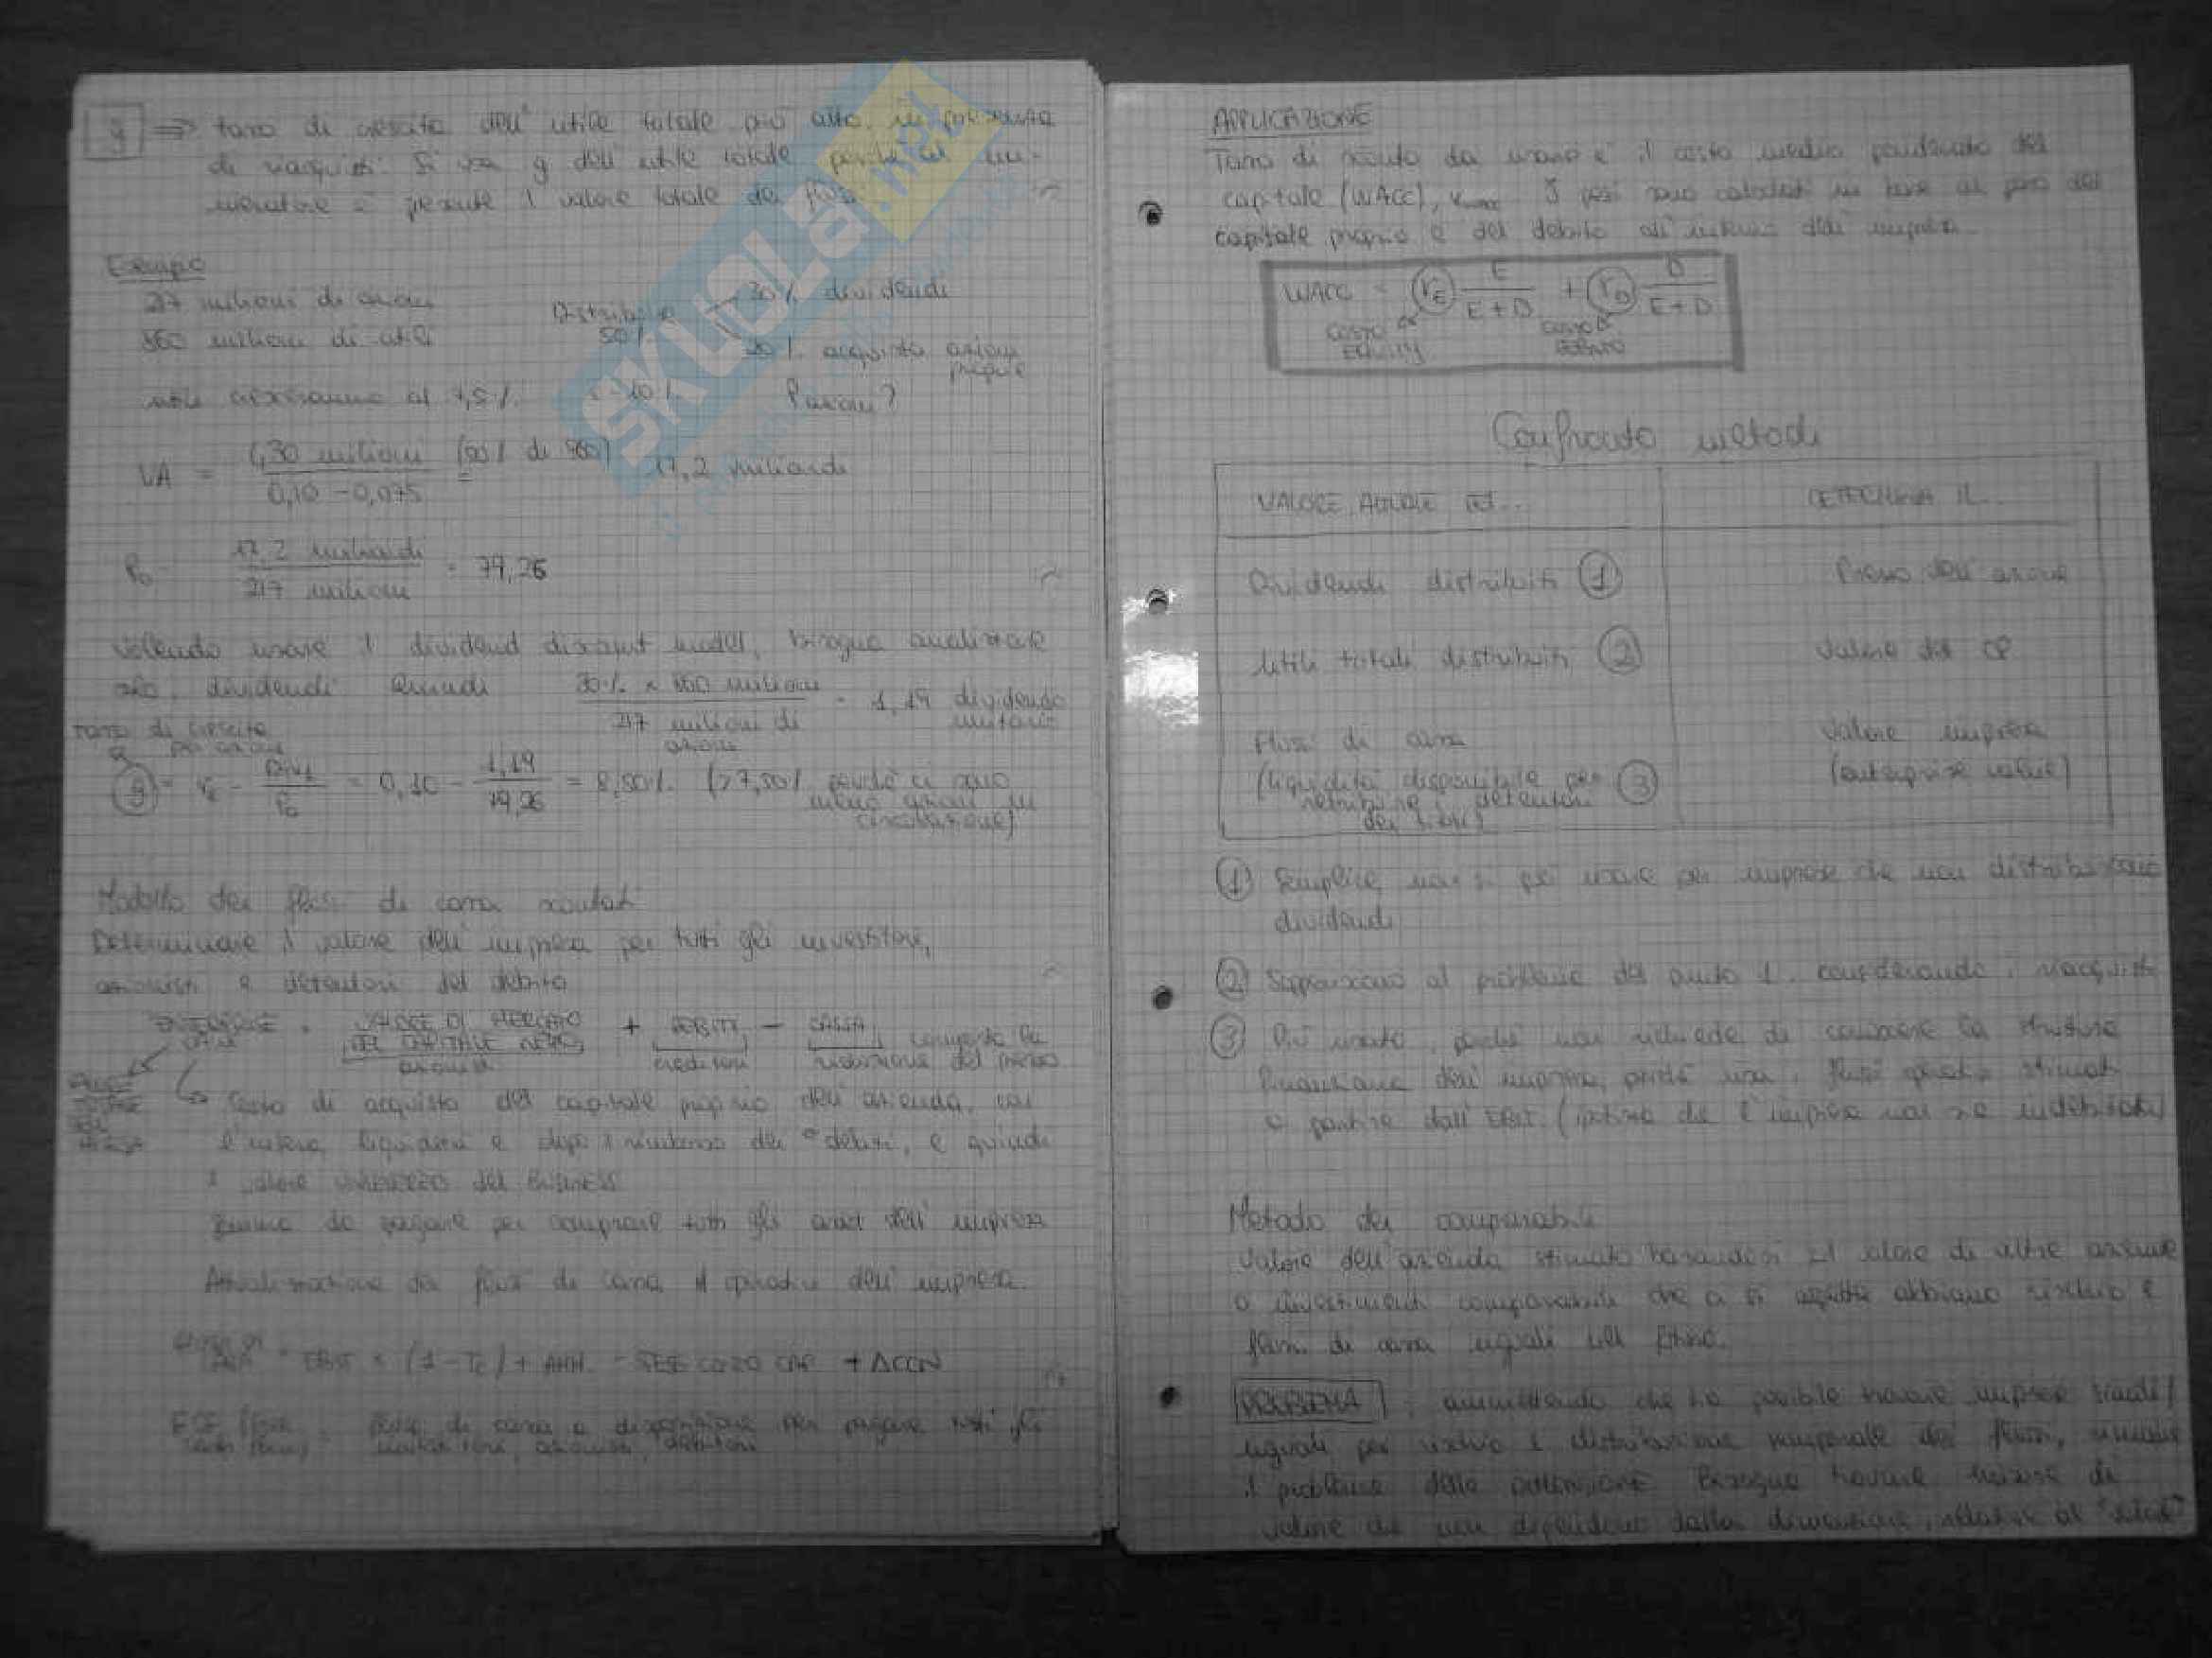 g ⇒ tasso di crescita dell'utile totale più alto, in presenza
di riacquisti. Si usa g dell'utile totale perché al nu-
meratore è presente il valore totale dei flussi.
Esempio
217 milioni di azioni
860 milioni di utili
Distribuito 50%
30% dividendi
20% acquisto azioni proprie
utili cresceranno al 7,5%
r = 10%
P azioni?
VA = 430 milioni (50% di 860) / 0,10 - 0,075 = 17,2 miliardi
P0 = 17,2 miliardi / 217 milioni = 79,26
Volendo usare il dividend discount model, bisogna analizzare
solo i dividendi. Quindi 30% x 860 milioni / 217 milioni di azioni = 1,19 dividendo unitario
tasso di crescita per azioni
g = rE - Div1 / P0 = 0,10 - 1,19 / 79,26 = 8,50% (>7,50% perché ci sono
meno azioni in
circolazione)
Modello dei flussi di cassa scontati
Determinare il valore dell'impresa per tutti gli investitori,
azionisti e detentori del debito
ENTERPRISE VALUE = VALORE DI MERCATO DEL CAPITALE NETTO + DEBITI - CASSA comporta la
azionisti creditori riduzione del prezzo
Costo di acquisto del capitale proprio dell'azienda, con
l'intera liquidità e dopo il rimborso dei debiti, e quindi
il valore del BUSINESS
Somma da pagare per comprare tutti gli asset dell'impresa
Attualizzazione dei flussi di cassa operativi dell'impresa.
EBIT x (1-Tc) + AMM. - SPESE CONTO CAP + ΔCCN
FCF (free cash flow) = flusso di cassa a disposizione per pagare tutti gli
investitori, azionisti, debitori
APPLICAZIONE
Tasso di sconto da usare è il costo medio ponderato del
capitale (WACC), rwacc. I pesi sono calcolati in base al peso del
capitale proprio e del debito di dell'impresa.
WACC = rE E / E+D + rD D / E+D
COSTO EQUITY COSTO DEBITO
Confronto metodi
VALORE ATTUALE DEI... DETERMINA IL...
Dividendi distribuiti 1 Prezzo dell'azione
Utili totali distribuiti 2 Valore del CP
Flussi di cassa Valore impresa
(liquidità disponibile per 3 (enterprise value)
retribuire i detentori
dei
1 Semplice, non si può usare per imprese che non distribuiscono
dividendi
2 Sopperiscono al problema del punto 1. considerando i riacquisti
3 Più usato, perché non richiede di conoscere la struttura
finanziaria dell'impresa, perché usa i flussi stimati
a partire dall'EBIT (ipotesi che l'impresa non sia indebitata)
Metodo dei comparabili
Valore dell'azienda stimato basandosi sul valore di altre aziende
o investimenti comparabili che ci si aspetta abbiano rischio e
flussi di cassa uguali nel futuro.
PROBLEMA: ammettendo che sia possibile trovare imprese simili/
uguali per rischio e distribuzione temporale dei flussi, rimane
il problema della dimensione. Bisogna trovare misure di
valore che non dipendono dalla dimensione,